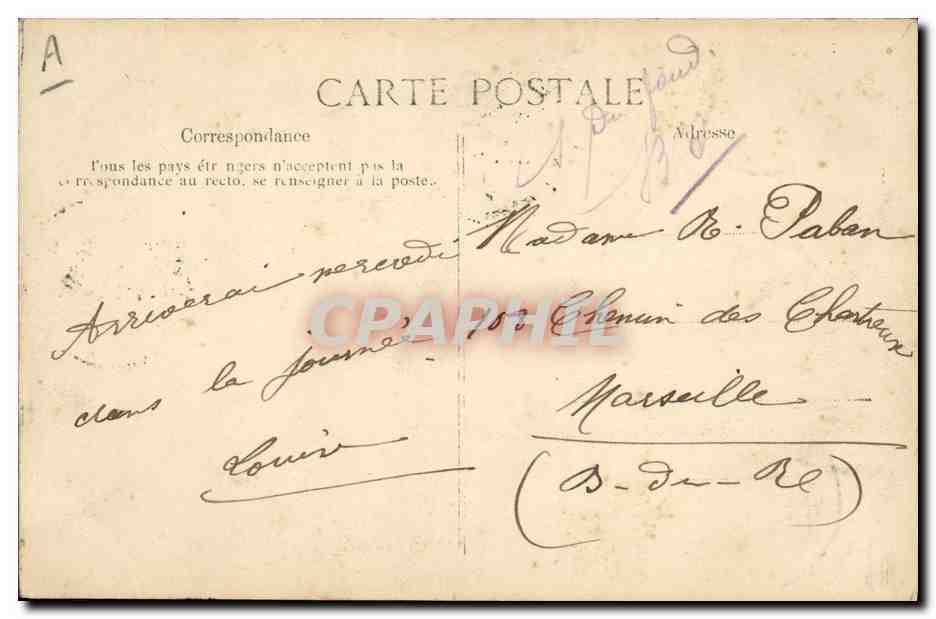 A
CARTE POSTALE
Correspondance
Tous les pays étr ngers n'acceptent pas la
correspondance au recto, se renseigner à la poste.
Arriverai mercredi
dans la journée
Louise
Adresse
du fond
B
Madame R. Paban
102 Chemin des Chartreux
Marseille
(B-du-R)
CPAPHIL